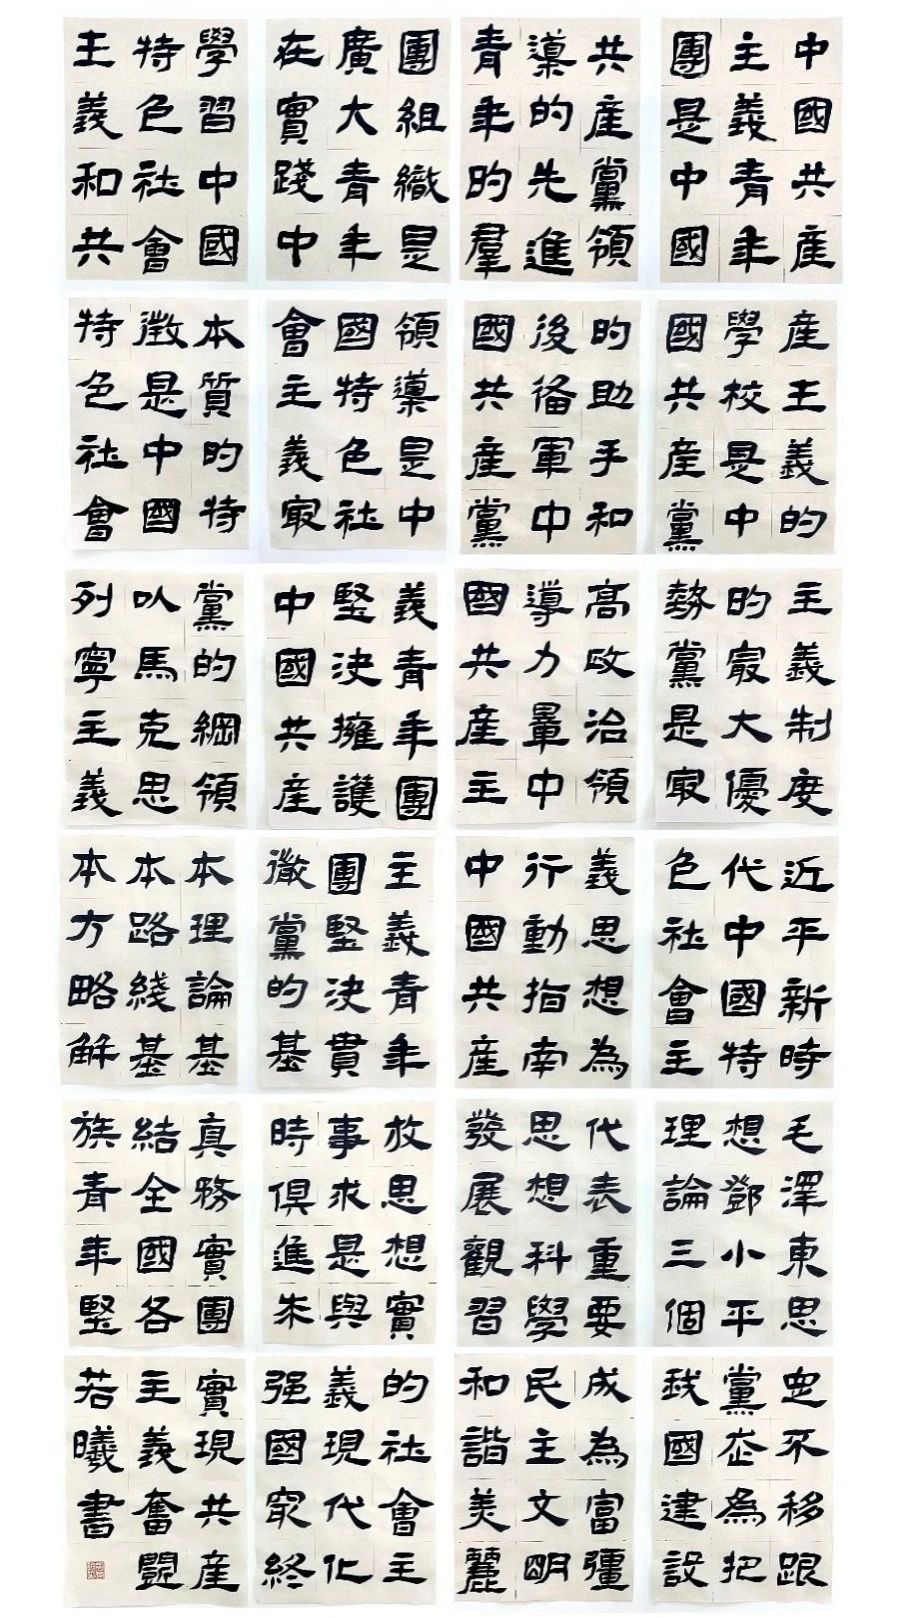 中國共產
主義青年
團是中國
共產黨領
導的先進
青年的羣
團組織是
廣大青年
在實踐中
學習中國
特色社會
主義和共
產主義的
學校是中
國共產黨
的助手和
後備軍中
國共產黨
領導是中
國特色社
會主義最
本質的特
徵是中國
特色社會
主義制度
的最大優
勢黨是最
高政治領
導力量中
國共產主
義青年團
堅決擁護
中國共產
黨的綱領
以馬克思
列寧主義
近平新時
代中國特
色社會主
義思想為
行動指南
中國共產
主義青年
團堅決貫
徹黨的基
本理論基
本路綫基
本方略解
毛澤東思
想鄧小平
理論三個
代表重要
思想科學
發展觀習
放思想實
事求是與
時俱進求
真務實團
結全國各
族青年堅
定不移跟
黨走為把
我國建設
成為富彊
民主文明
和諧美麗
的社會主
義現代化
强國最終
實現共產
主義奮鬥
若曦書